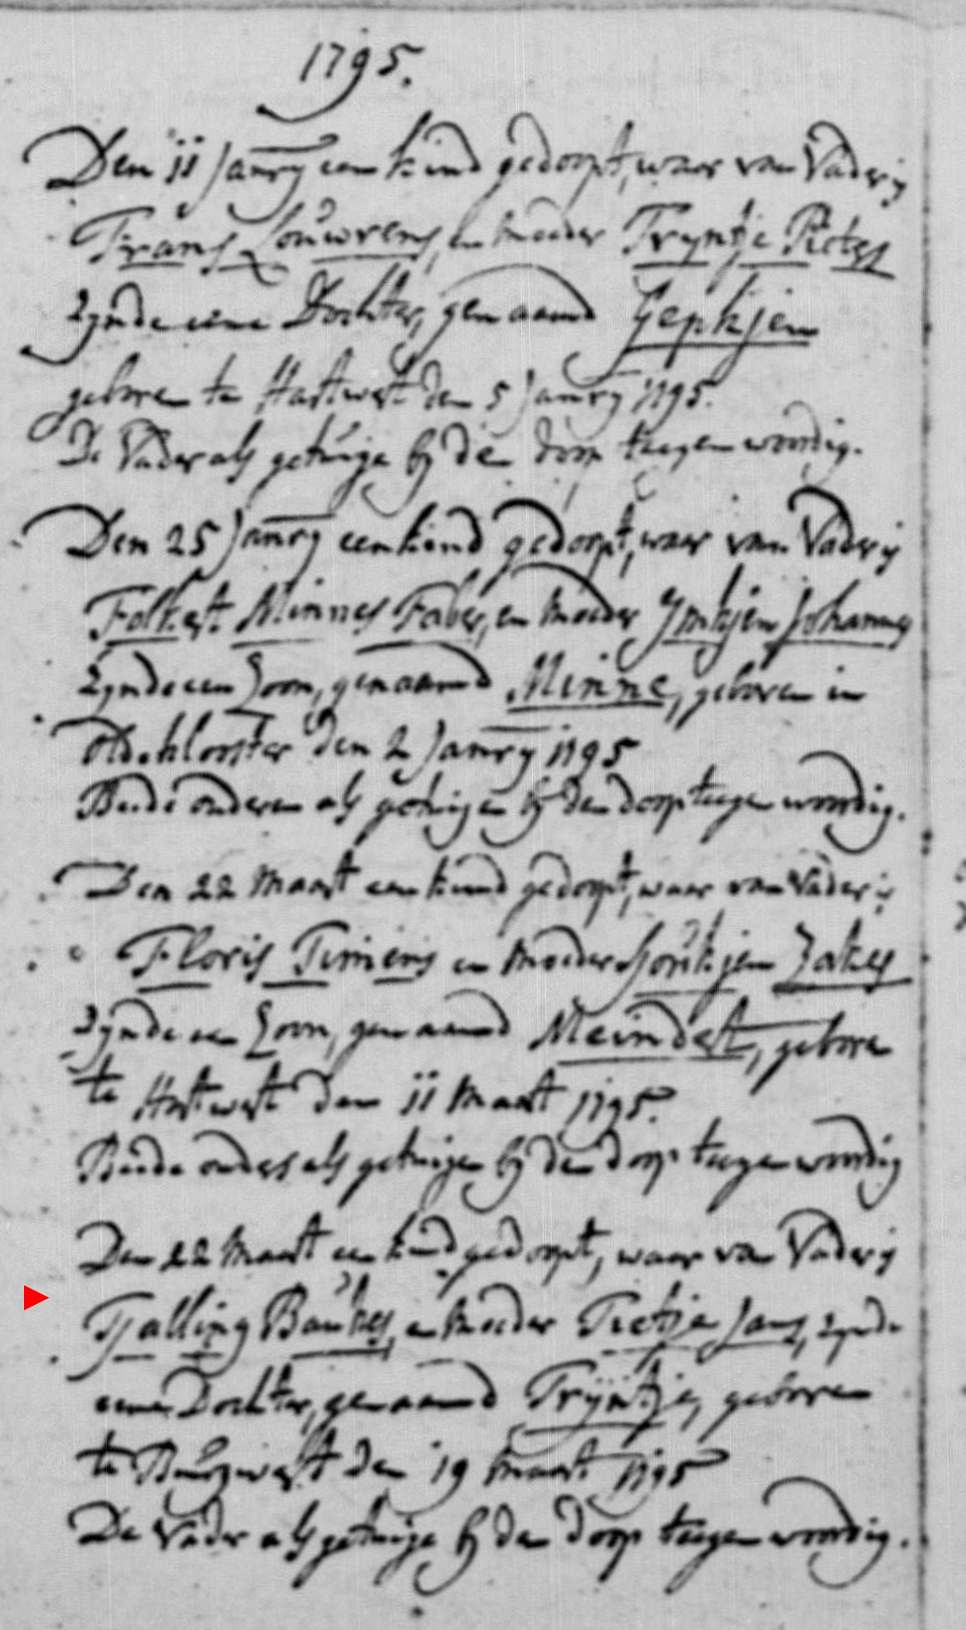 1795.
Den 11 Janry een kind gedoopt, waar van Vader is
Frans Louwrens, en moeder Tryntje Pieters
zynde eene Dochter, genaamd Gepkjen
geboren te Hartwert den 5 Janry 1795.
De Vader als getuige by den doop tegenwoordig.
Den 25 Janry een kind gedoopt, waar van Vader is
Folkert Minnes Faber, en moeder Ymkjen Johannes
zynde een Zoon, genaamd Minne, geboren in
Oldeklooster den 2 Janry 1795
Beide ouderen als getuigen by den doop tegenwoordig.
Den 22 Maart een kind gedoopt, waar van Vader is
Floris Timens en moeder Sjoukjen Zakes
zynde een Zoon, genaamd Meindert, geboren
te Hartwert den 11 Maart 1795.
Beide ouders als getuigen by den doop tegenwoordig
Den 22 Maart een kind gedoopt, waar van Vader is
Tjalling Baukes, en moeder Tietje Jans, zynde
eene Dochter, genaamd Tryntje, geboren
te Burgwert den 19 Maart 1795
De Vader als getuige by den doop tegenwoordig.